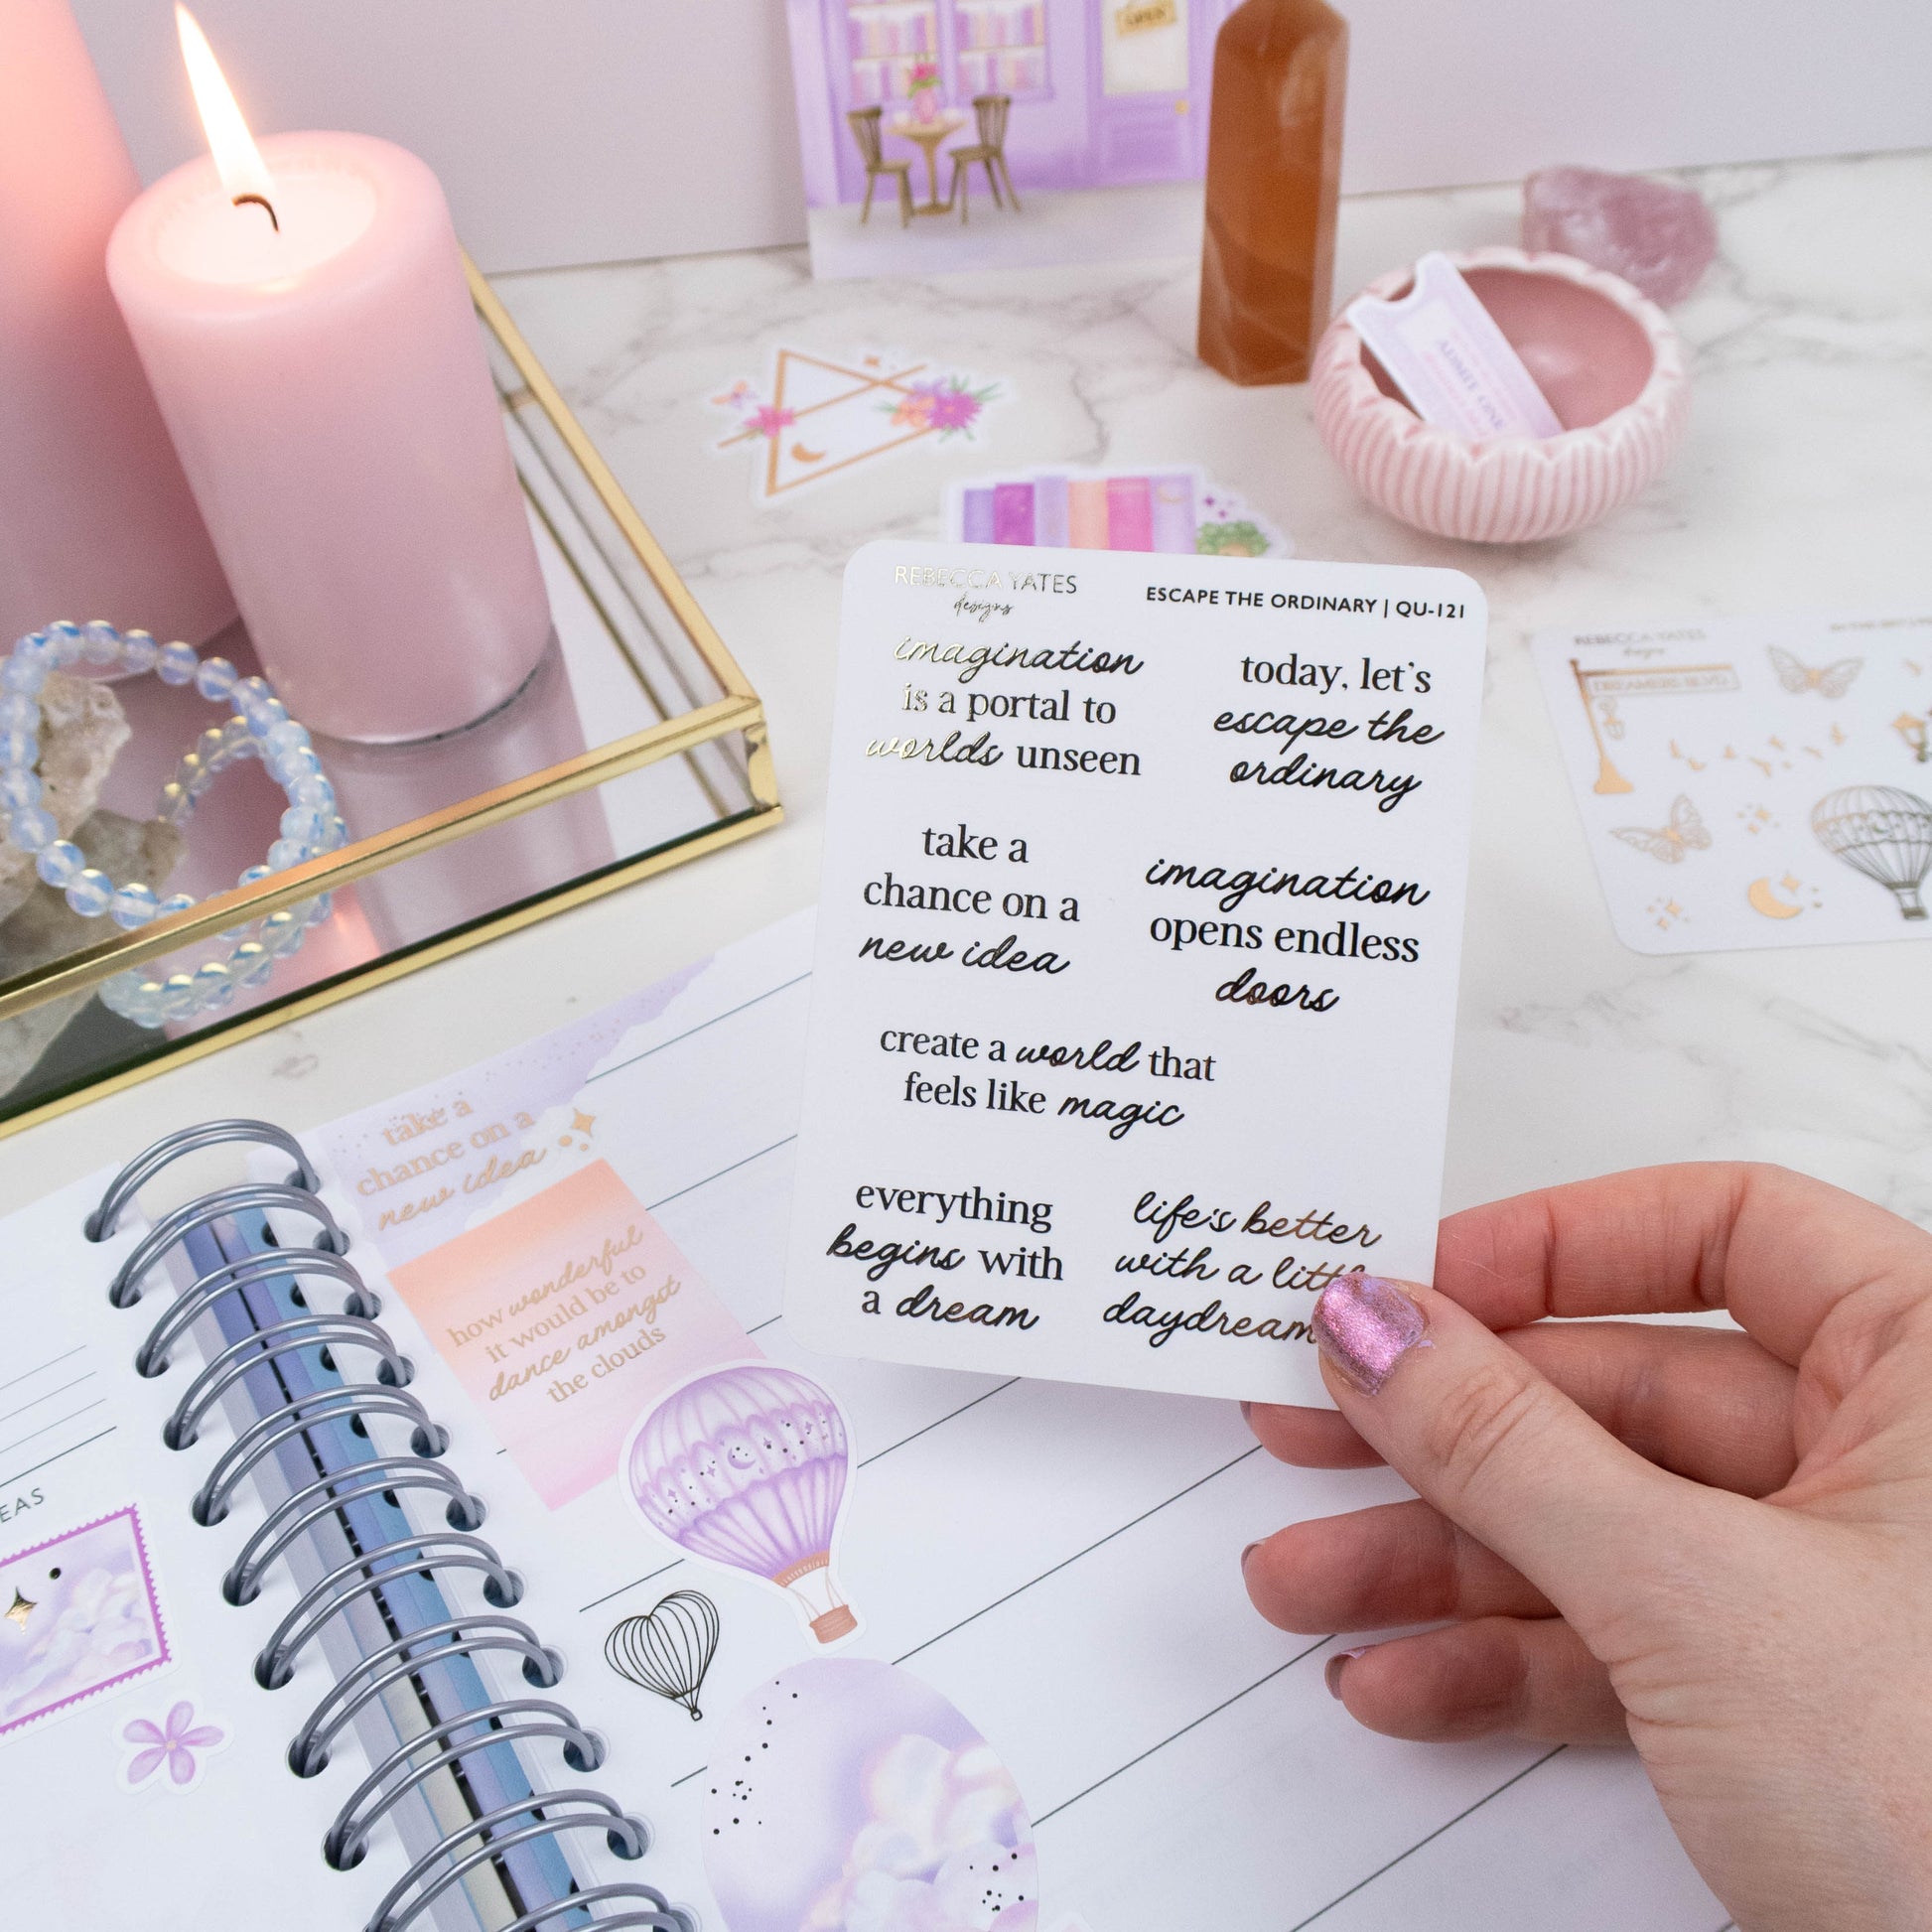 OPEN
ADMIT ONE
REBECCA YATES
designs
ESCAPE THE ORDINARY | QU-121
imagination
is a portal to
worlds unseen
today, let's
escape the
ordinary
take a
chance on a
new idea
imagination
opens endless
doors
create a world that
feels like magic
everything
begins with
a dream
life's better
with a little
daydream
REBECCA YATES
designs
DREAMERS BLVD.
take a
chance on a
new idea
how wonderful
it would be to
dance amongst
the clouds
EAS